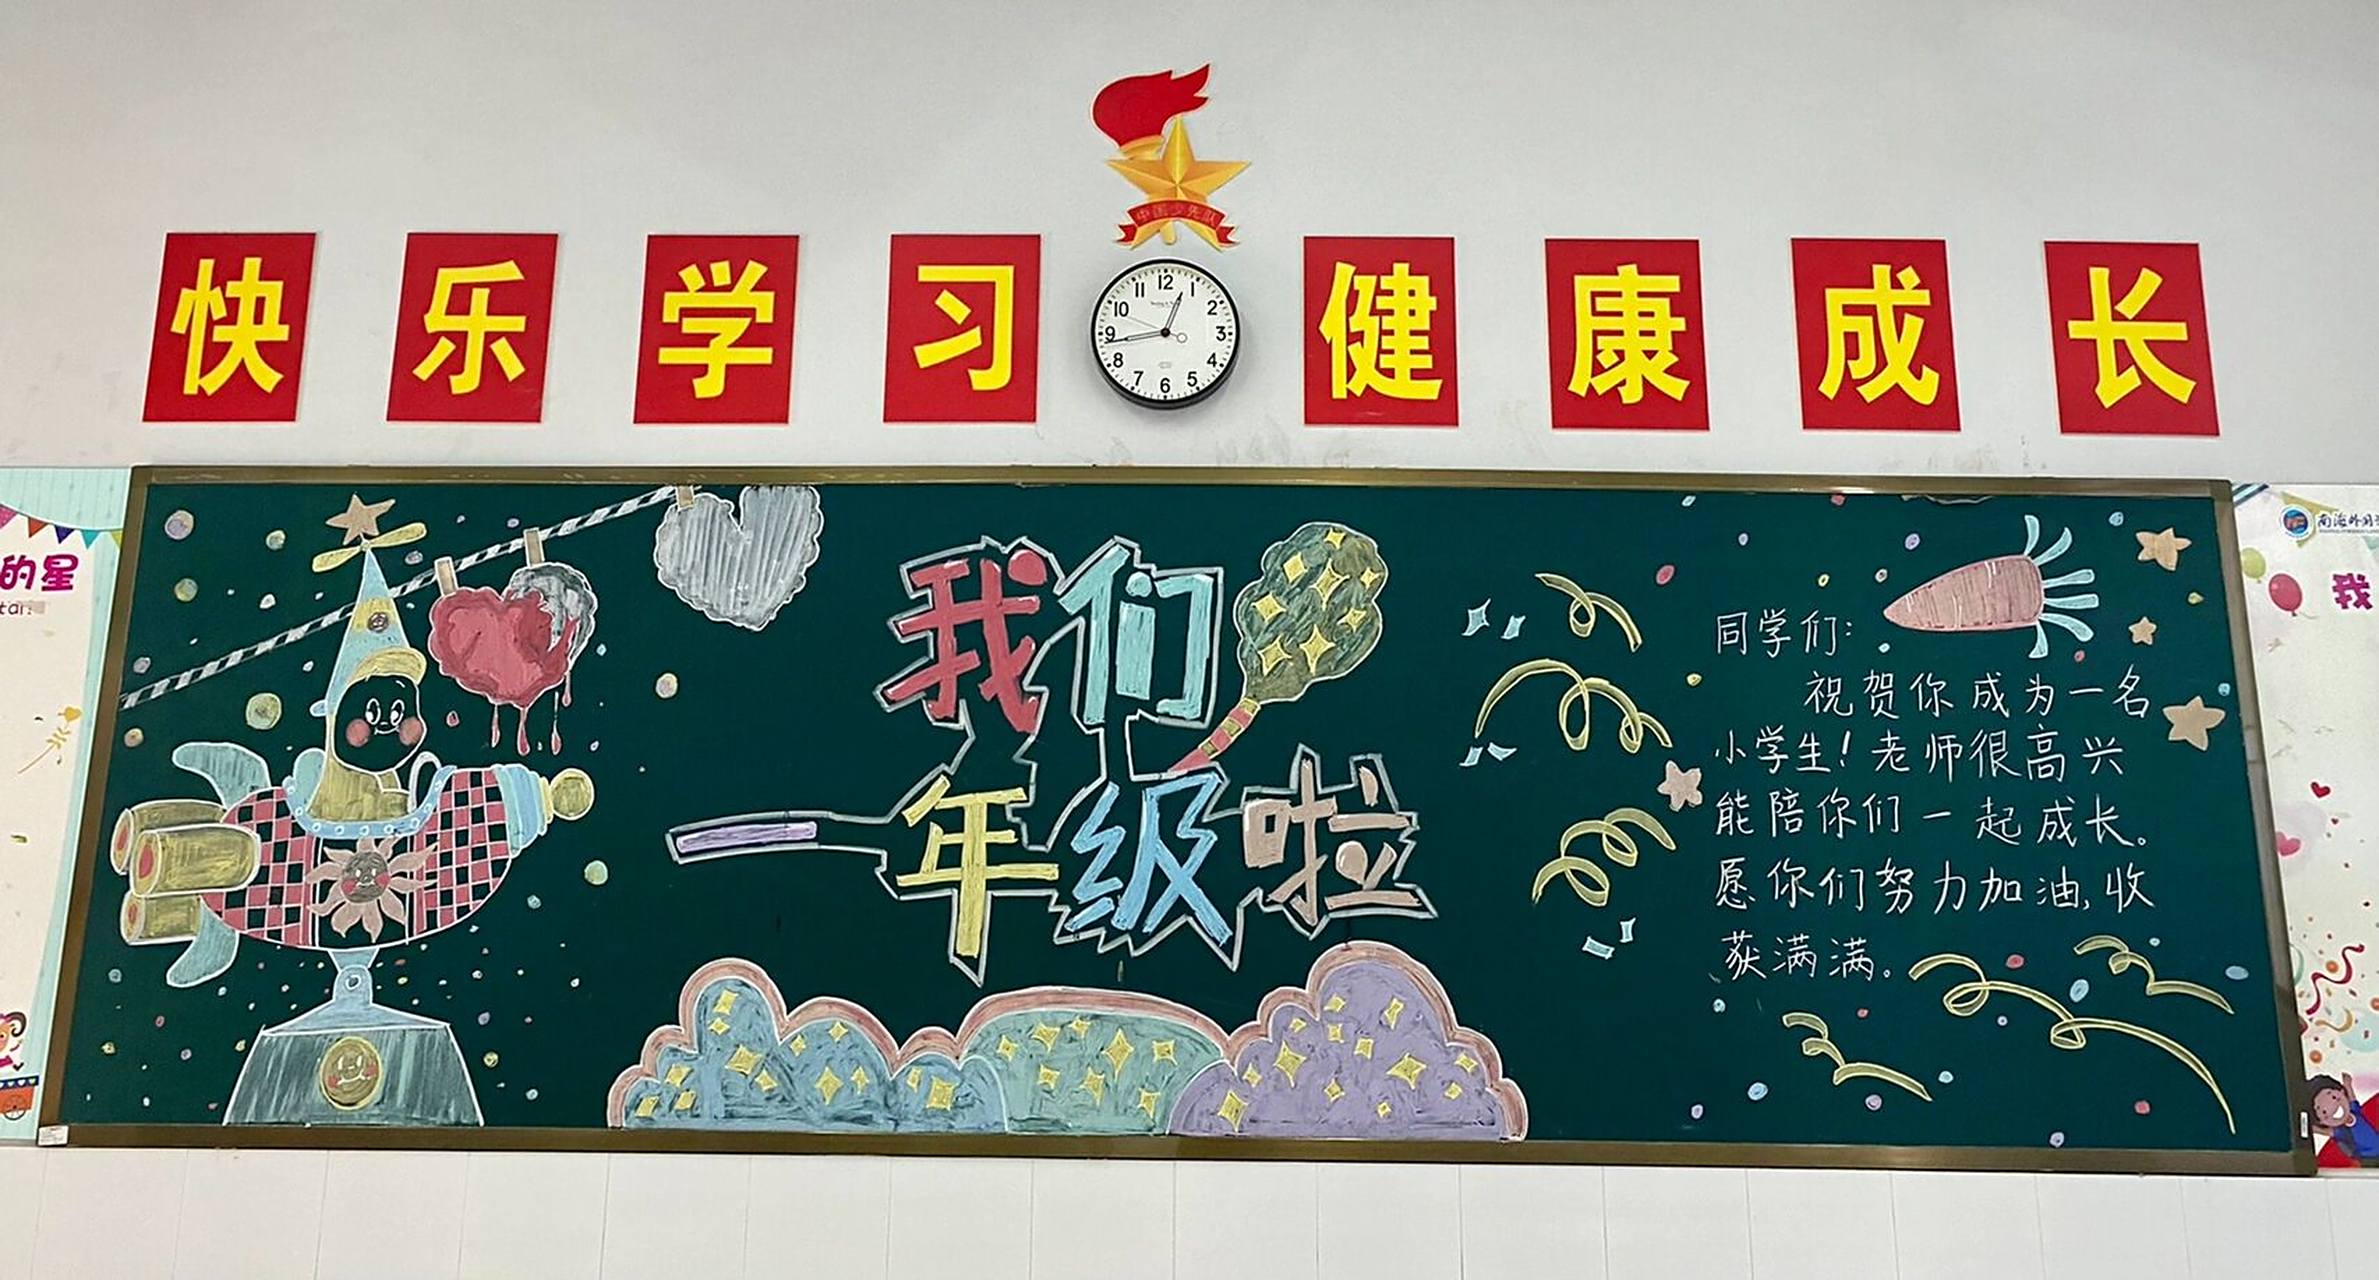 中国少先队
快乐学习健康成长
12
1
2
3
4
5
6
7
8
9
10
11
的星
我们
一年级啦
同学们：
祝贺你成为一名
小学生！老师很高兴
能陪你们一起成长。
愿你们努力加油,收
获满满。
南海外国
我